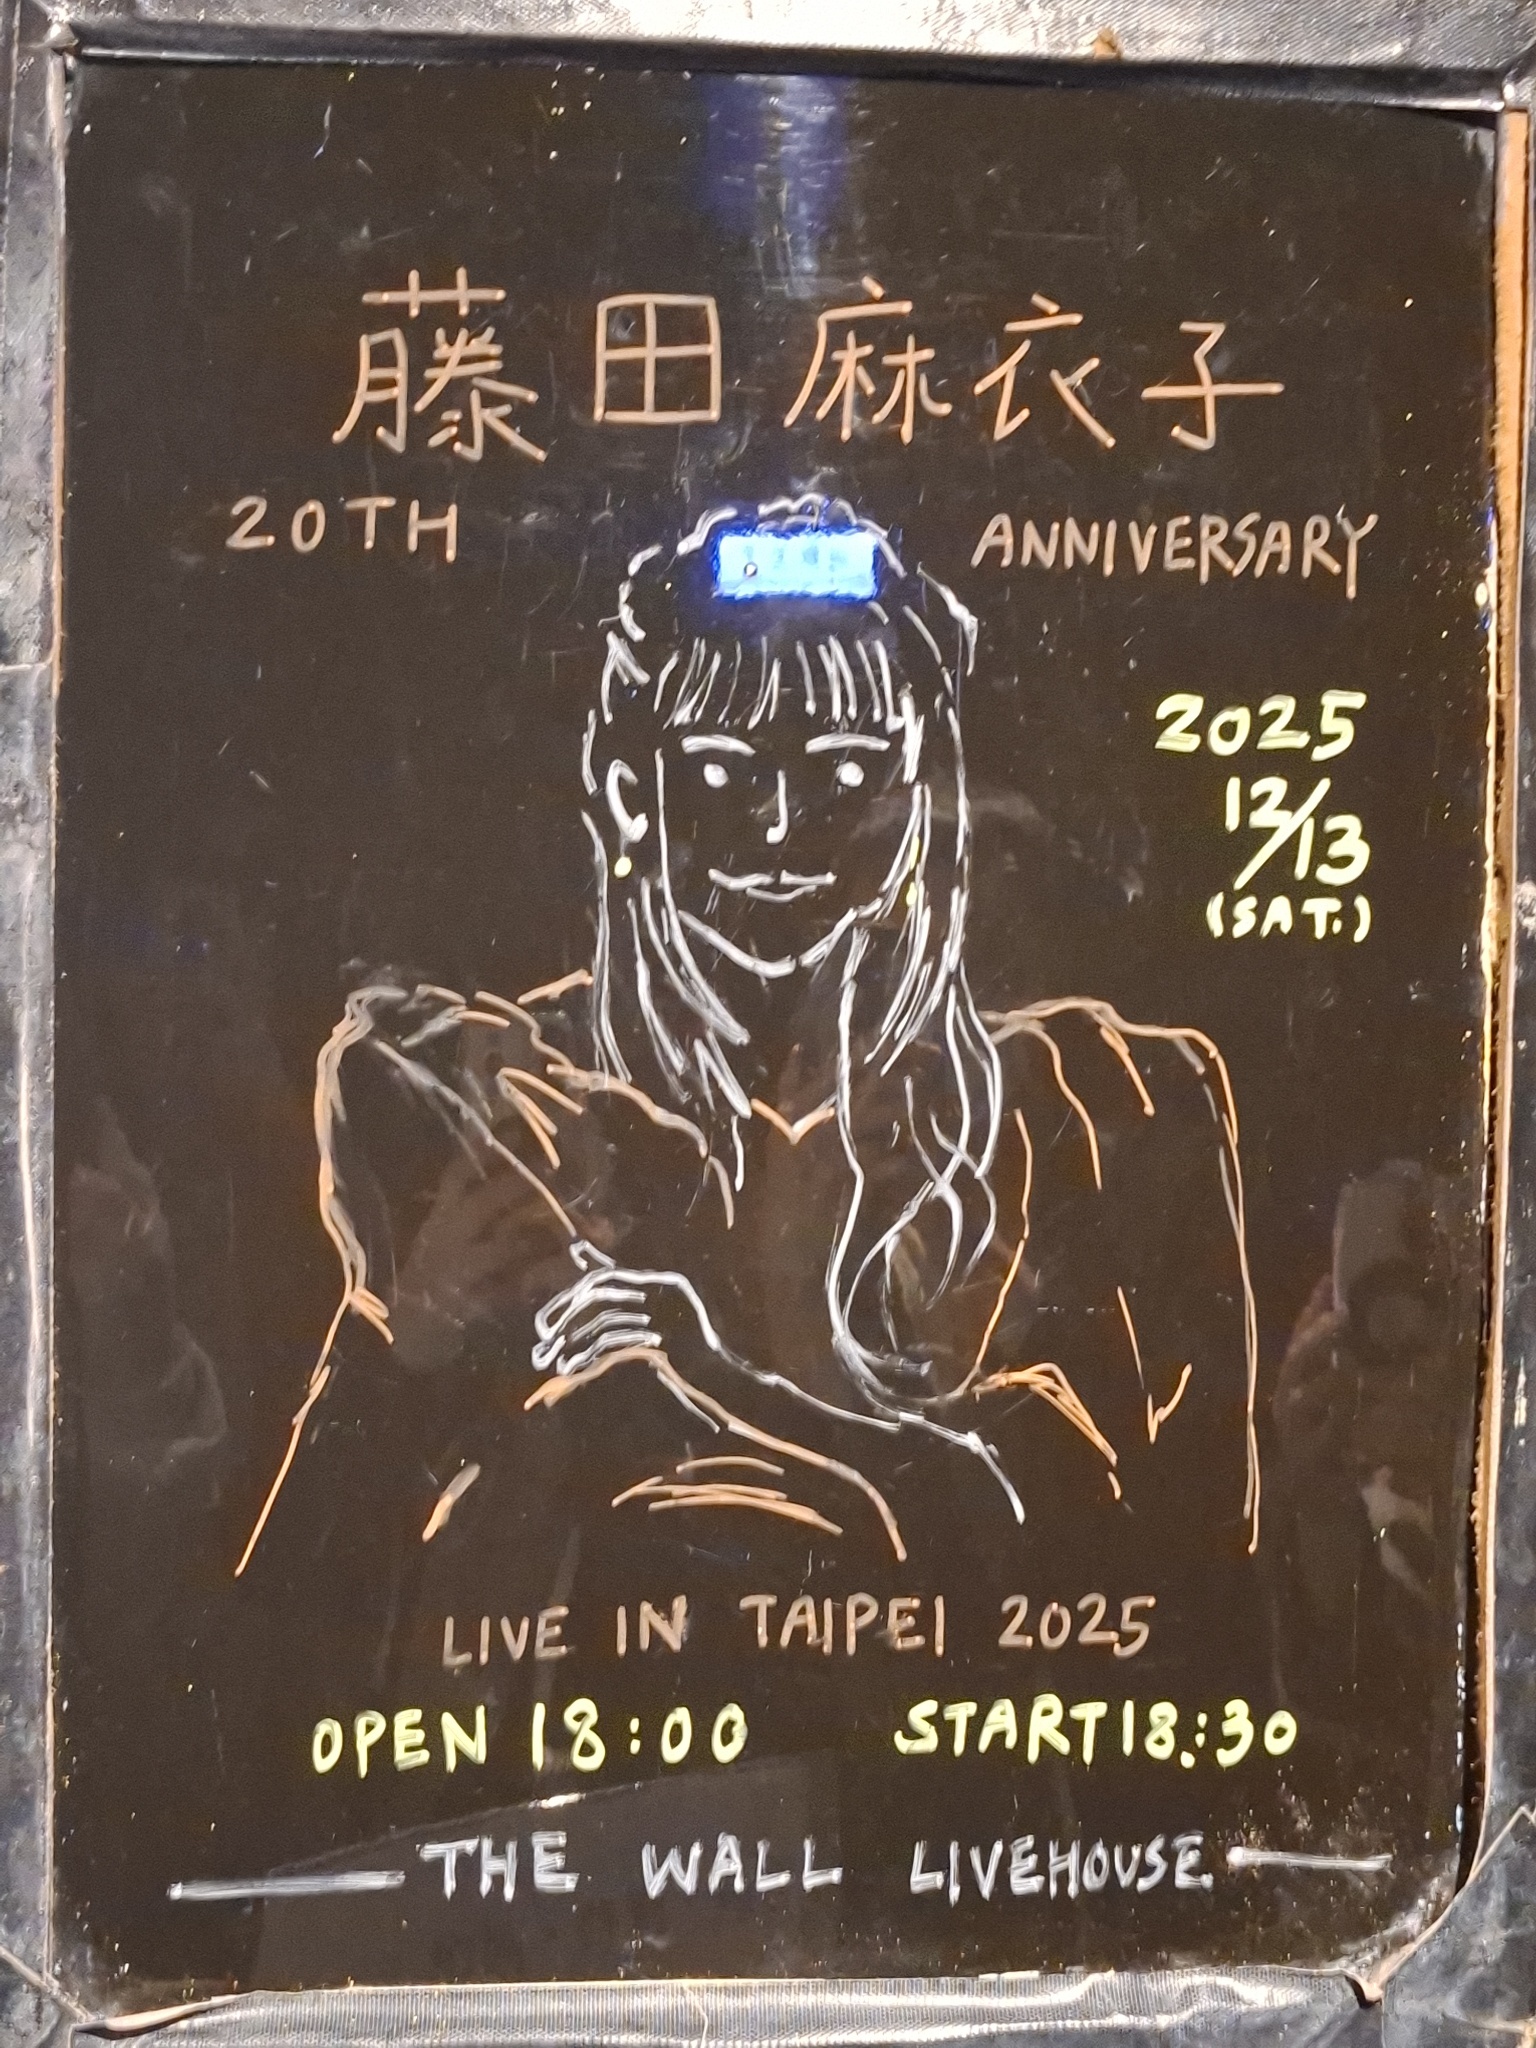 藤田麻衣子
20TH ANNIVERSARY
2025
12/13
(SAT.)
LIVE IN TAIPEI 2025
OPEN 18:00 START 18:30
THE WALL LIVEHOUSE